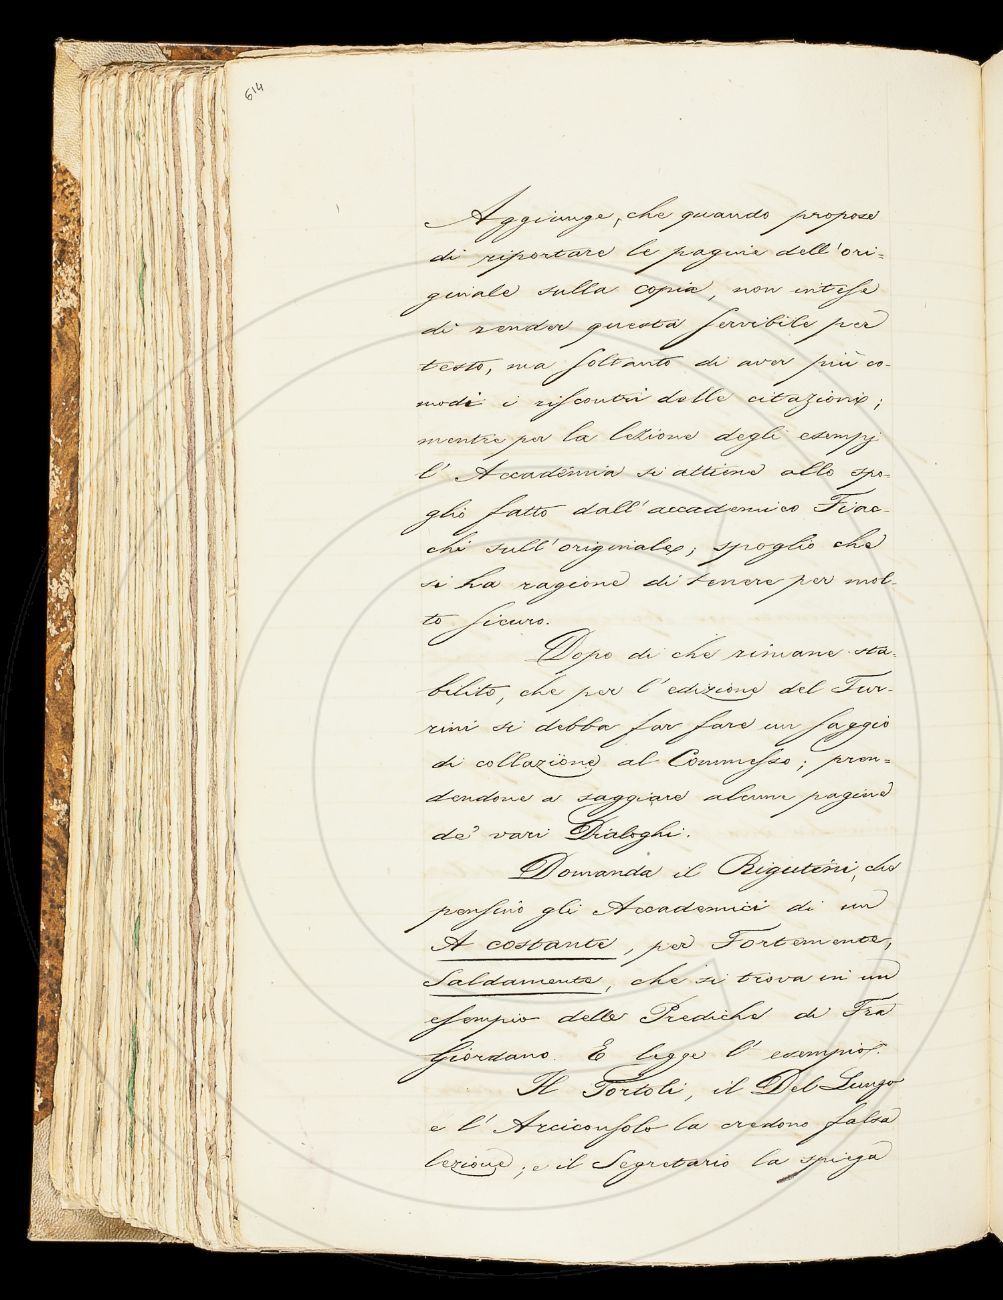 614
Aggiunge, che quando propose
di riportare le pagine dell'ori=
ginale sulla copia, non intese
di render questa servibile per
testo, ma soltanto di aver più co-
modi i riscontri delle citazioni;
mentre per la lezione degli esempj
l'Accademia si attiene allo spo-
glio fatto dall'accademico Fiac-
chi sull'originale; spoglio che
si ha ragione di tenere per mol-
to sicuro.
Dopo di che rimane sta-
bilito, che per l'edizione del Tur-
rini si debba far fare un saggio
di collazione al Commesso; pren=
dendone a saggiare alcune pagine
de' vari Dialoghi.
Domanda il Rigutini, che
pensino gli Accademici di un
A costante, per Fortemente,
Saldamente, che si trova in un
esempio delle Prediche di Fra
Giordano. E legge l'esempio.
Il Tortoli, il Del-Lungo
e l'Arciconsolo la credono falsa
lezione; e il Segretario la spiega